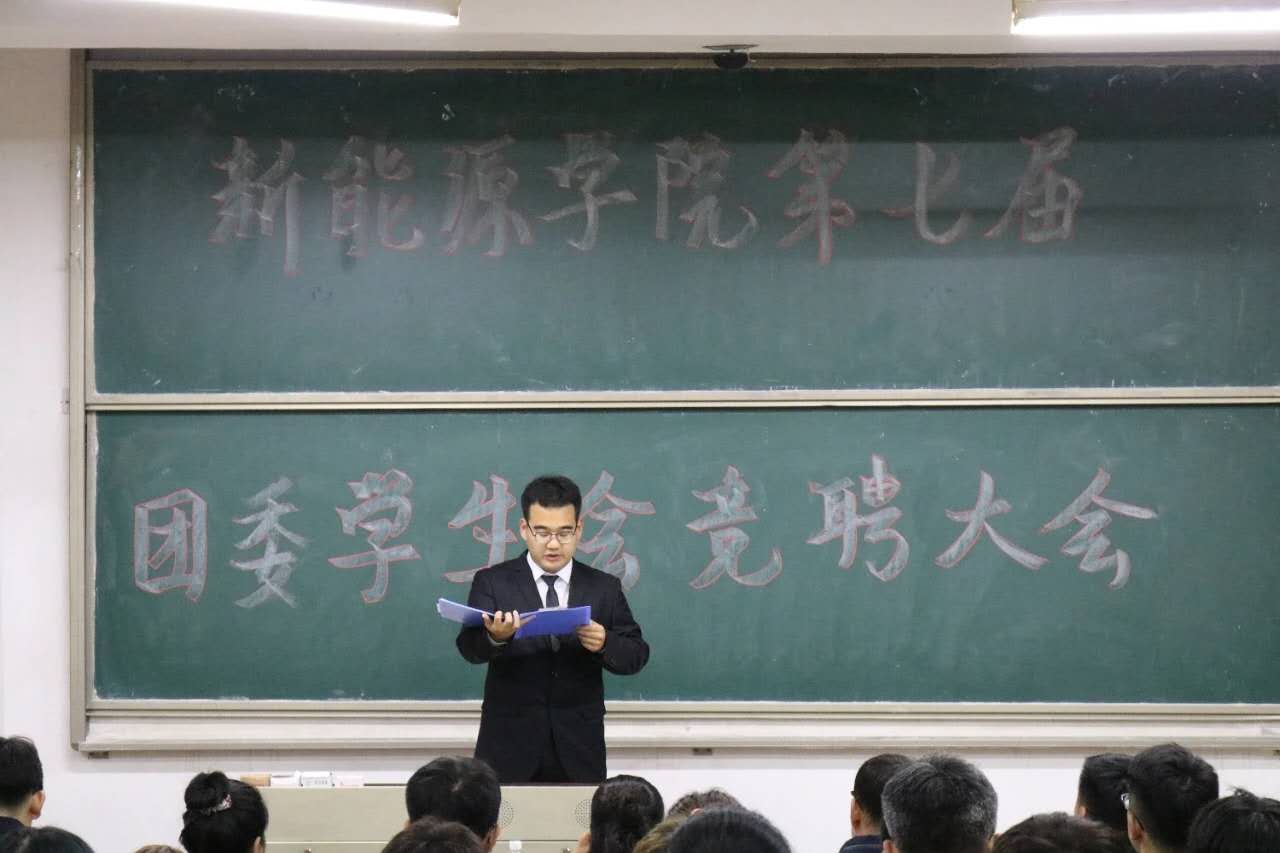 新能源学院第七届
团委学生会竞聘大会